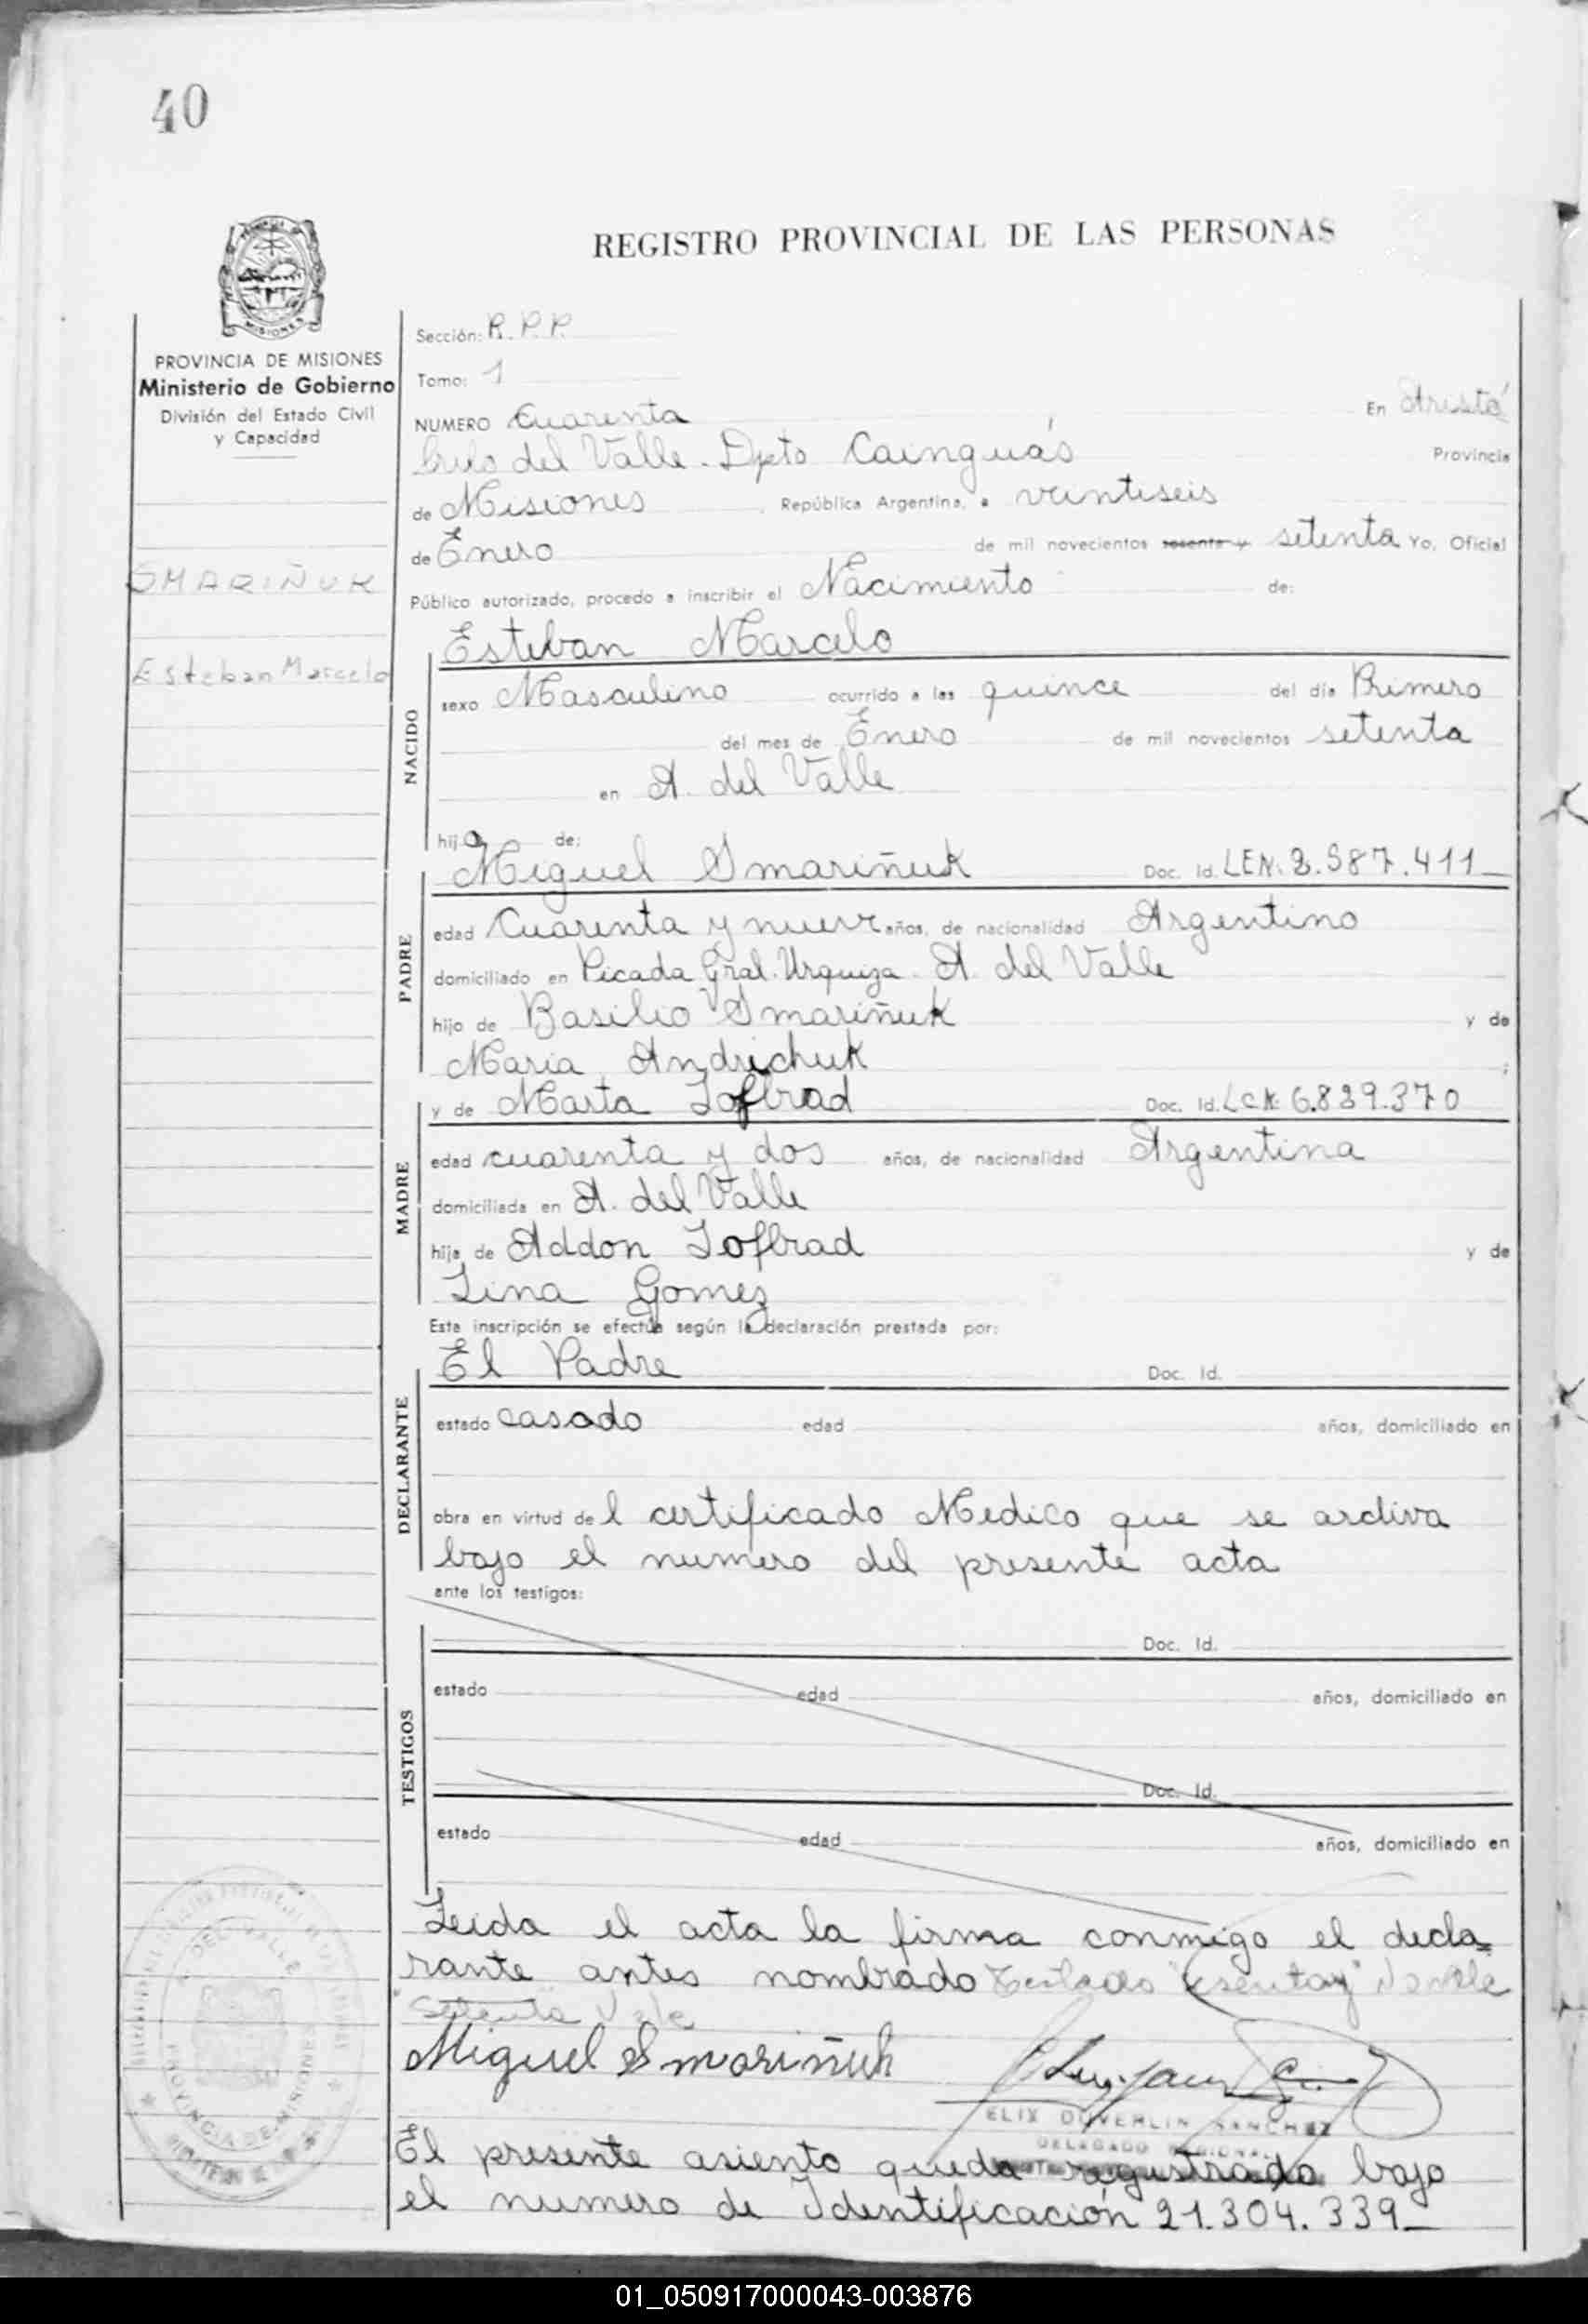 40
REGISTRO PROVINCIAL DE LAS PERSONAS
MISIONES
PROVINCIA DE MISIONES
Ministerio de Gobierno
División del Estado Civil
y Capacidad
SMARIÑUK
Esteban Marcelo
Sección: R.P.P.
Tomo: 1
NUMERO Cuarenta En Aristó
bulo del Valle. Dpto Cainguás Provincia
de Misiones, República Argentina, a veintiseis
de Enero de mil novecientos sesenta y setenta Yo, Oficial
Público autorizado, procedo a inscribir el Nacimiento de:
Esteban Marcelo
NACIDO
sexo Masculino ocurrido a las quince del día Primero
del mes de Enero de mil novecientos setenta
en A. del Valle
hijo de:
Miguel Smariñuk Doc. Id. LEN. 2.587.411
PADRE
edad Cuarenta y nueve años, de nacionalidad Argentino
domiciliado en Picada Gral. Urquiza A. del Valle
hijo de Basilio Smariñuk y de
Maria Andrichuk ;
y de Marta Jofbrad Doc. Id. LCN. 6.839.370
MADRE
edad cuarenta y dos años, de nacionalidad Argentina
domiciliada en A. del Valle
hija de Addon Jofbrad y de
Lina Gomez
Esta inscripción se efectúa según la declaración prestada por:
El Padre Doc. Id.
DECLARANTE
estado casado edad años, domiciliado en
obra en virtud del certificado Medico que se archiva
bajo el numero del presente acta
ante los testigos:
Doc. Id.
TESTIGOS
estado edad años, domiciliado en
Doc. Id.
estado edad años, domiciliado en
Leida el acta la firma conmigo el decla=
rante antes nombrado Testado "sesenta y" No vale
"setenta" Vale
Miguel Smariñuk
DEL VALLE
PROVINCIA DE MISIONES
ELIX DUVERLIN SANCHEZ
DELEGADO REGIONAL
El presente asiento queda registrado bajo
el numero de Identificación 21.304.339_
01_050917000043-003876